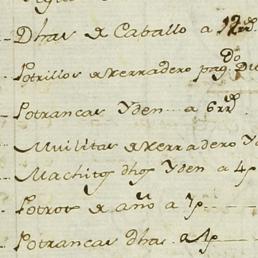 Dhas de Caballo a 12 rr.
Potrillos de herradero pag.
Potrancas Yden a 6 rr.
Muilitas de herradero
Machitos dhos Yden a 4 p
Potros de año a 7 p
Potrancas dhas a